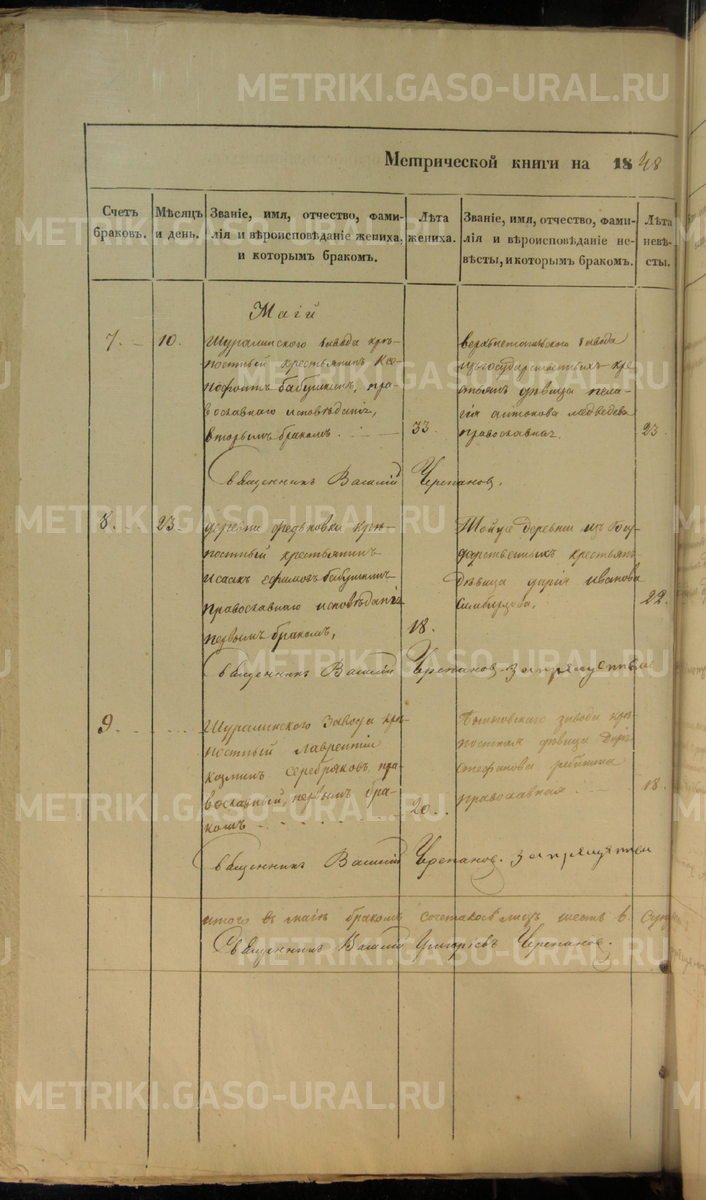 METRIKI.GASO-URAL.RU
Метрической книги на 1848
Счетъ браковъ.
Мѣсяцъ и день.
Званіе, имя, отчество, фами-
лія и вѣроисповѣданіе жениха,
и которымъ бракомъ.
Лѣта жениха.
Званіе, имя, отчество, фами-
лія и вѣроисповѣданіе не-
вѣсты, и которымъ бракомъ.
Лѣта невѣ-
сты.
Маій
7. 10.
Шуралинского завода крѣ-
постный крестьянинъ Ксе-
нофонтъ бабушкинъ, пра-
вославнаго исповѣданія,
вторымъ бракомъ. 33.
завода
изъ государственныхъ кре
стьянъ дѣвица пела-
гія антонова медведева
православная 23
Священникъ Василій Черепановъ.
8. 23.
деревни федьковки крѣ-
постный крестьянинъ
исаакъ ефимовъ бабушкинъ
православнаго исповѣданія
первымъ бракомъ, 18.
Тойже деревни изъ Госу-
дарственныхъ крестьянъ
Дѣвица дарія иванова
22.
Священникъ Василій Черепановъ
9
Шуралинского завода крѣ-
постный лаврентій
козминъ серебряковъ, пра-
вославный, первымъ бра-
комъ 20.
завода крѣ-
постная дѣвица
стефанова
православная 18.
Священникъ Василій Черепановъ.
итого въ маіѣ бракомъ сочеталось лицъ шесть 6.
Священникъ Василій Черепановъ.